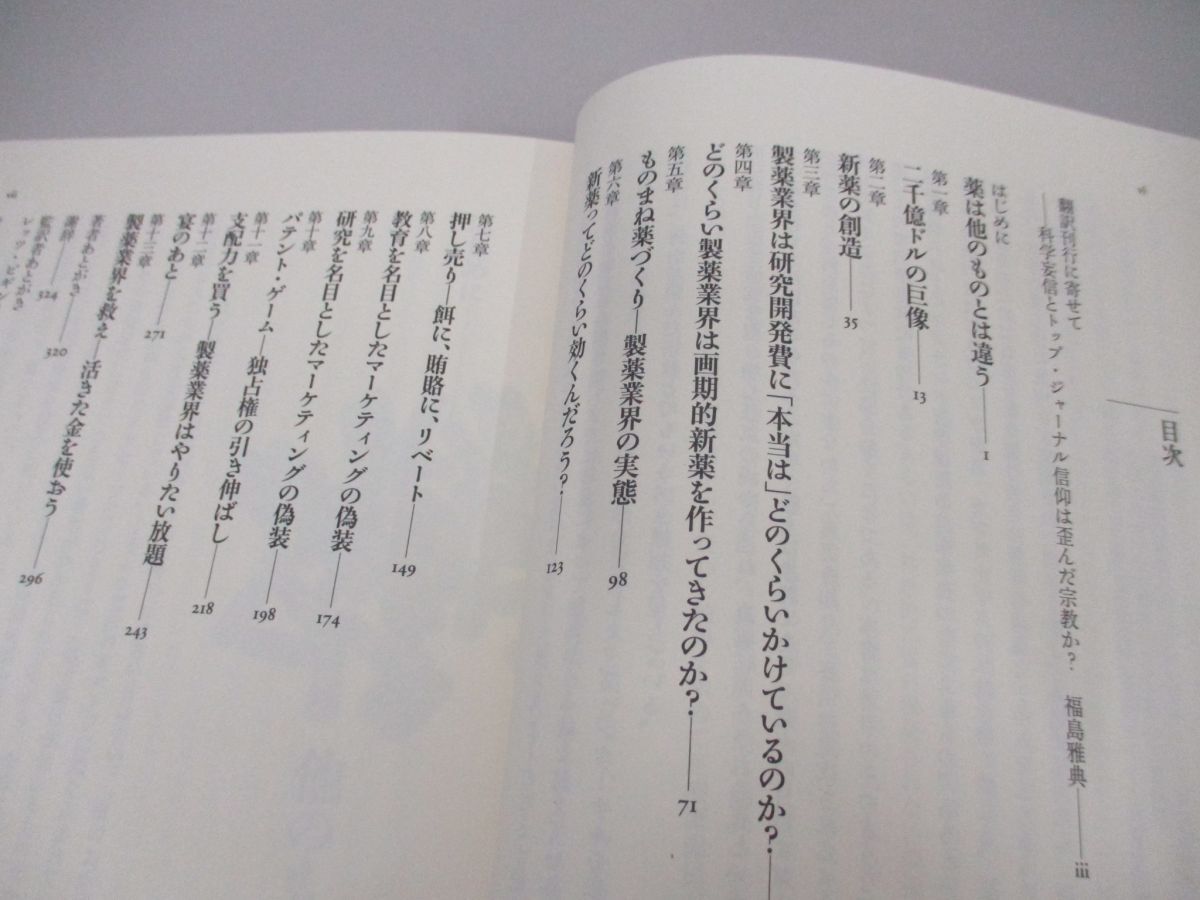 vi
目次
翻訳刊行に寄せて
——科学妄信とトップ・ジャーナル信仰は歪んだ宗教か? 福島雅典——iii
はじめに
薬は他のものとは違う——1
第一章
二千億ドルの巨像——13
第二章
新薬の創造——35
第三章
製薬業界は研究開発費に「本当は」どのくらいかけているのか?——
第四章
どのくらい製薬業界は画期的新薬を作ってきたのか?——71
第五章
ものまね薬づくり—製薬業界の実態——98
第六章
新薬ってどのくらい効くんだろう?——123
vii
第七章
押し売り—餌に、賄賂に、リベート——149
第八章
教育を名目としたマーケティングの偽装——174
第九章
研究を名目としたマーケティングの偽装——198
第十章
パテント・ゲーム—独占権の引き伸ばし——218
第十一章
支配力を買う—製薬業界はやりたい放題——243
第十二章
宴のあと——271
第十三章
製薬業界を救え—活きた金を使おう——296
著者あとがき——320
謝辞——324
監訳者あとがき